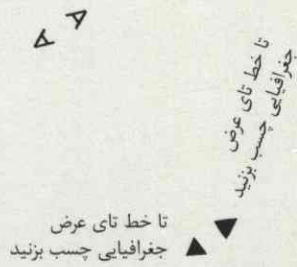 A
A
تا خط تای عرض
جغرافیایی چسب بزنید
تا خط تای عرض
جغرافیایی چسب بزنید